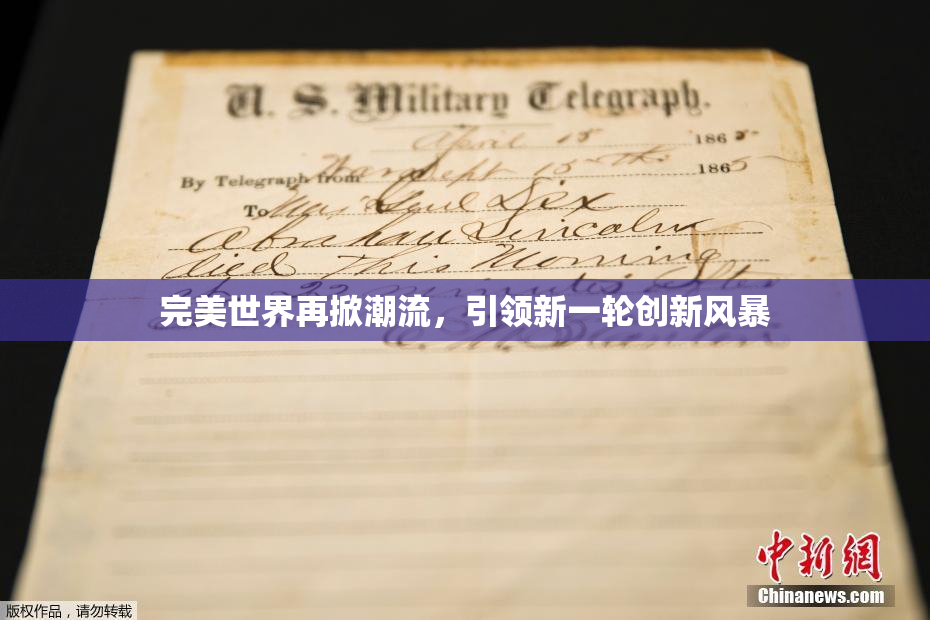 U. S. Military Telegraph.
April 15 1865
By Telegraph from War Dept 15th 1865
To Maj Genl Dix
Abraham Lincoln
died This Morning
at 22 minutes after
完美世界再掀潮流，引领新一轮创新风暴
E. M. Stanton
中新網
Chinanews.com
版权作品，请勿转载